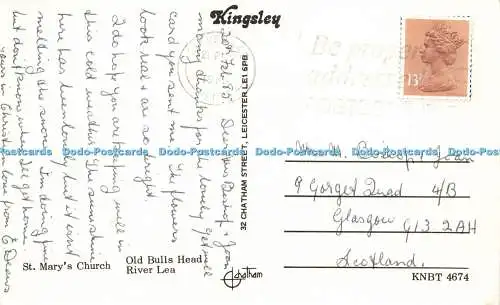 Kingsley
20th Feb 85 Dear Mrs Bishop & Joan
many thanks for the lovely get well
card you sent me. The flowers
look real & are so bright
I do hope you are keeping well in
this cold weather. The sunshine
here has been lovely, but it isn't
melting the snow. I'm doing fine
but don't know when I'll get home.
yours in Christ love from E Deans
St. Mary's Church
Old Bulls Head
River Lea
32 CHATHAM STREET, LEICESTER LE1 6PB
Chatham
Be proper
addressed
13P
Bishop & Joan
9 Gorget Quad 4/B
Glasgow G13 2AH
Scotland.
KNBT 4674
Dodo-Postcards Dodo-Postcards Dodo-Postcards Dodo-Postcards Dodo-Postcards